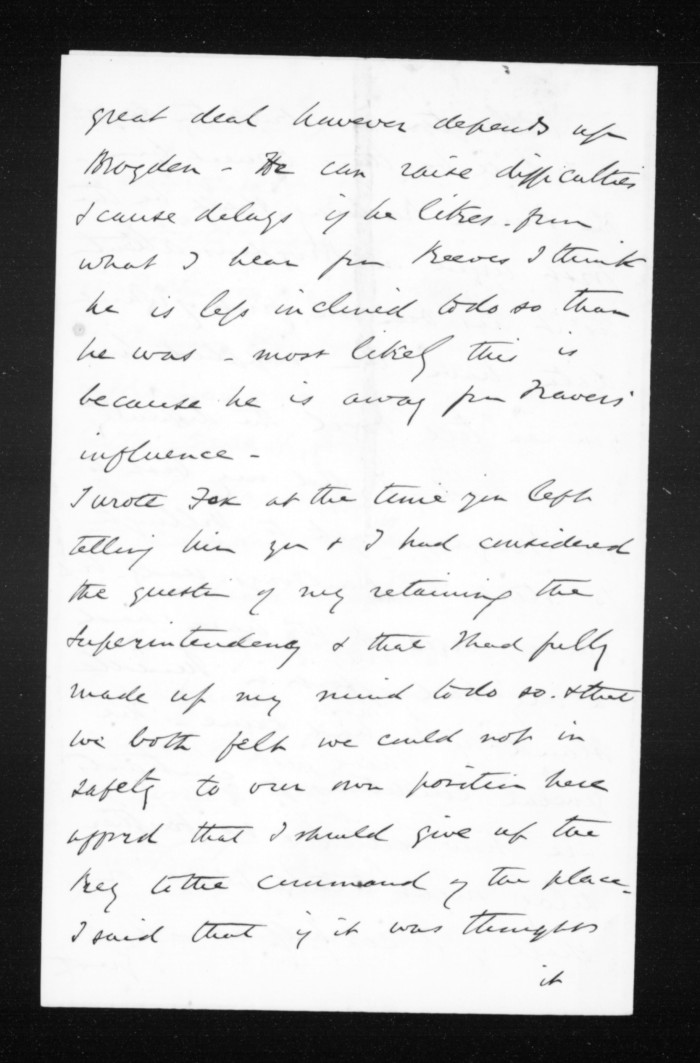 great deal however depends up
Brogden - He can raise difficulties
& cause delays if he likes - from
what I hear from Reeves I think
he is less inclined to do so than
he was - most likely this is
because he is away from Travers'
influence -
I wrote Fox at the time you left
telling him you & I had considered
the question of my retaining the
Superintendency & that I had fully
made up my mind to do so. & that
we both felt we could not in
safety to our own position here
afford that I should give up the
key to the command of the place -
I said that if it was thought
it